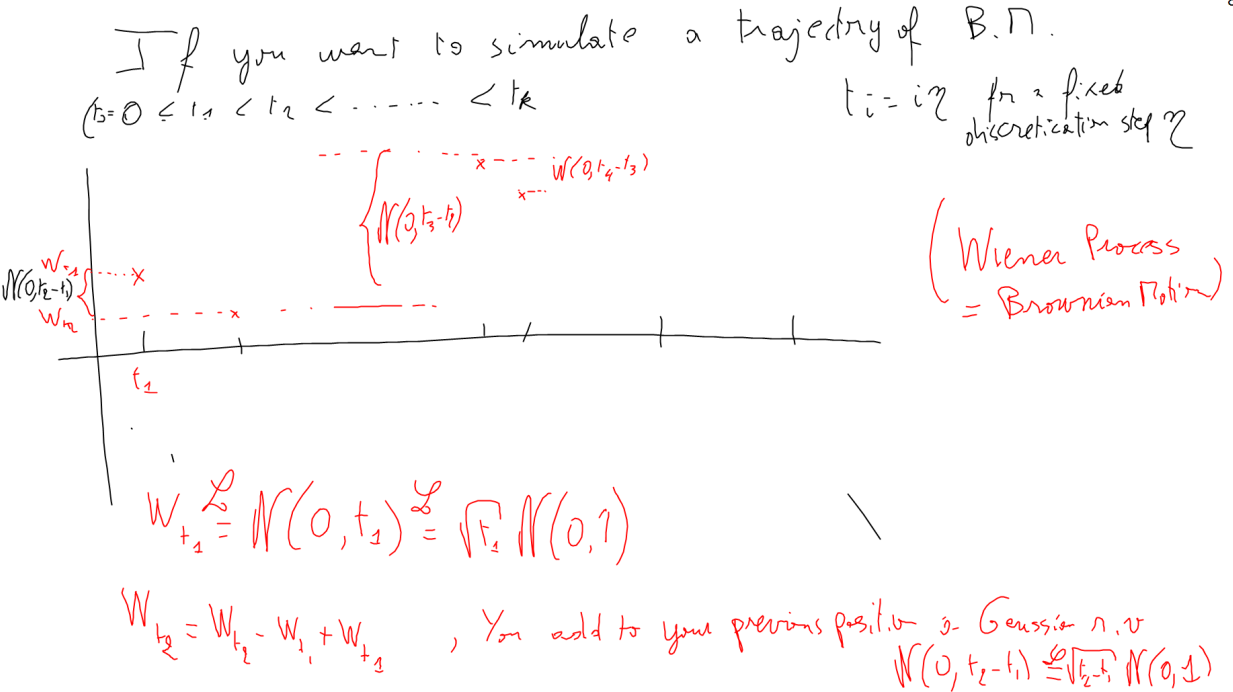 If you want to simulate a trajectory of B.M.
(t₀=0 ≤ t₁ < t₂ < ....... < tₖ
tᵢ = iη for a fixed
discretication step η
N(0,t₄-t₃)
N(0,t₃-t₂)
W_{t₁}
N(0,t₂-t₁)
W_{t₂}
(Wiener Process
= Brownian Motion)
t₁
W_{t₁} =^ℒ N(0,t₁) =^ℒ √t₁ N(0,1)
W_{t₂} = W_{t₂} - W_{t₁} + W_{t₁} , You add to your previous position a Gaussian r.v
N(0,t₂-t₁) =^ℒ √t₂-t₁ N(0,1)